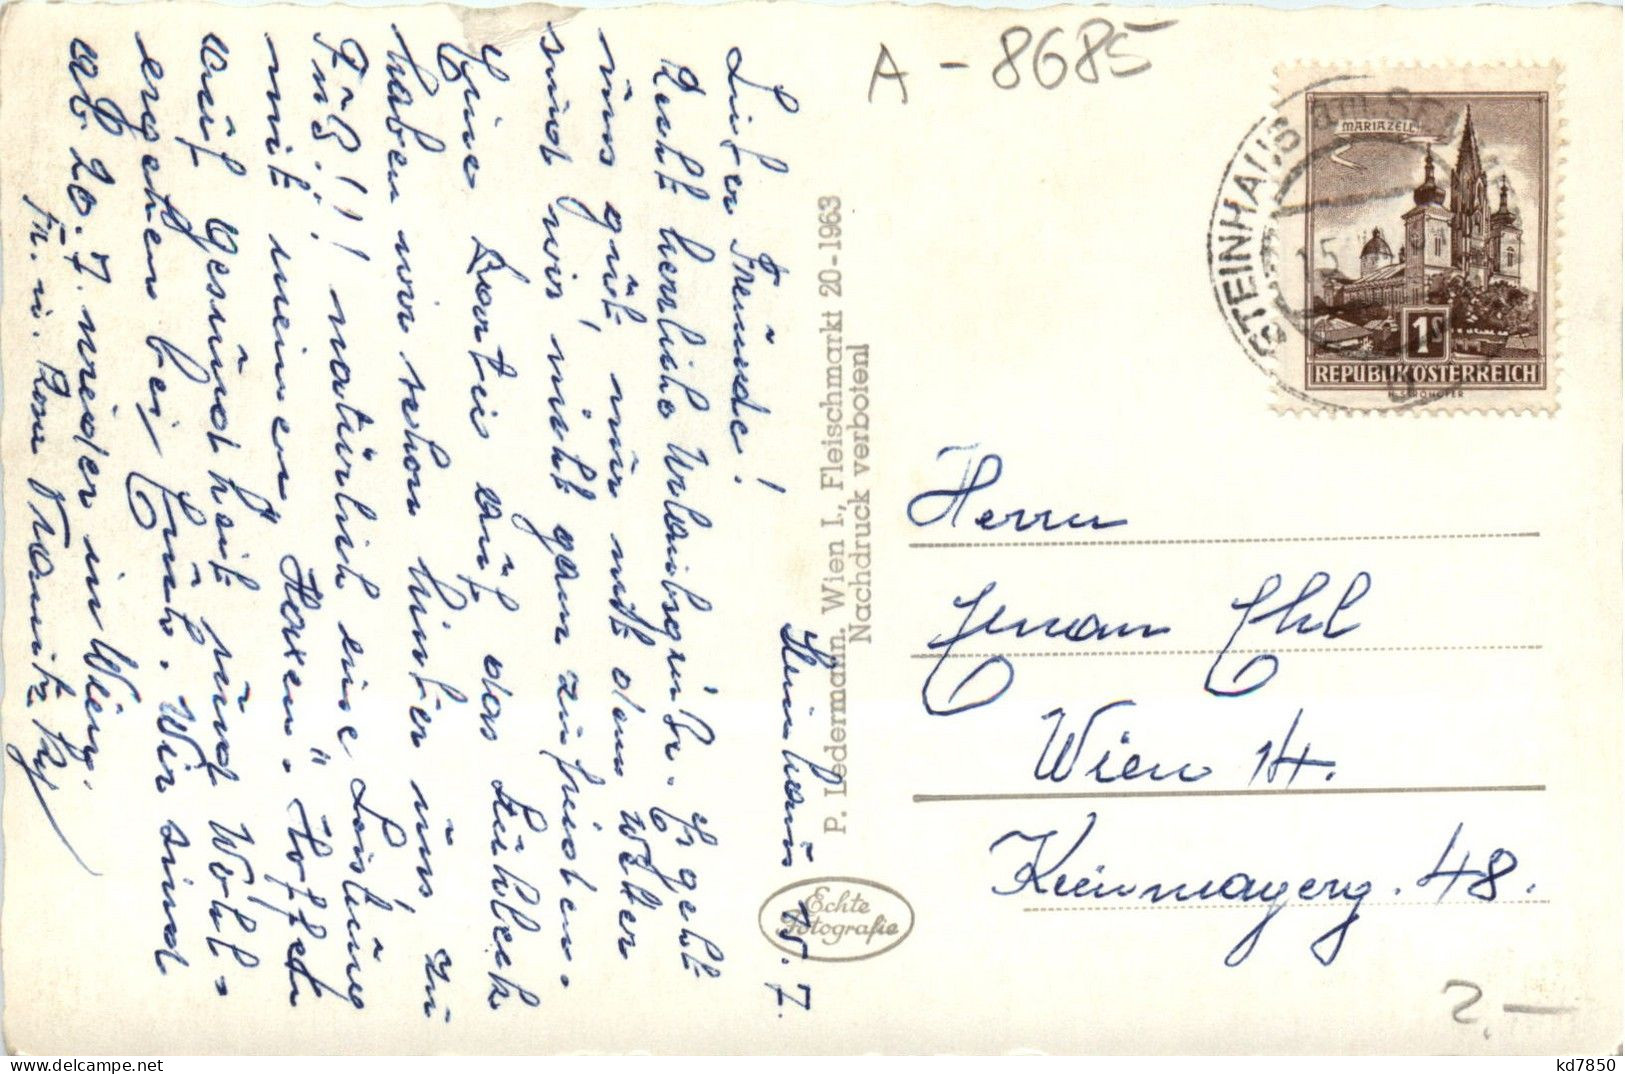 A - 8685
MARIAZELL
1S
REPUBLIK ÖSTERREICH
STEINHAUS am SEMMERING
Steinhaus 15. 7.
Liefer Freunde!
Recht herrliche Urlaubsgrüße. Es geht
uns gut, nur mit dem Wetter
sind wir nicht ganz zufrieden.
Eine Partie auf das
haben wir schon hinter uns, zu
Fuß!!! natürlich eine Leistung
mit meinen "Haxen". Hoffe
auf Gesundheit und Wohl-
ergehen bei Euch. Wir sind
ab 20. 7. wieder in Wien.
Fr. u.
P. Ledermann, Wien I., Fleischmarkt 20-1963
Nachdruck verboten!
Echte
Fotografie
Herrn
Ehl
Wien 14.
Kienmayerg. 48.
2.-
kd7850